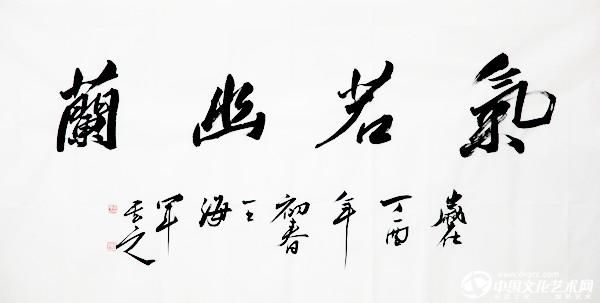 氣若幽蘭
歲在丁酉年初春王海军书之
中国文化艺术网